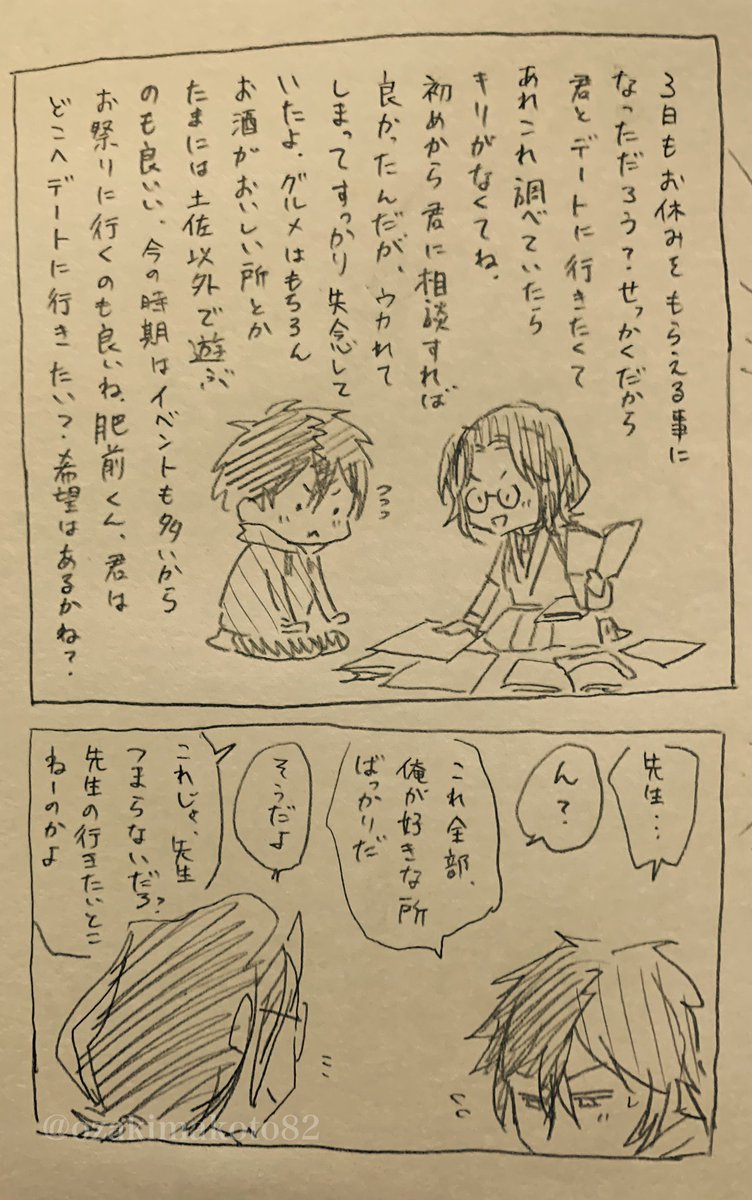 3日もお休みをもらえる事に
なっただろう?せっかくだから
君とデートに行きたくて
あれこれ調べていたら
キリがなくてね、
初めから君に相談すれば
良かったんだが、ウカれて
しまってすっかり失念して
いたよ、グルメはもちろん
お酒がおいしい所とか
たまには土佐以外で遊ぶ
のも良いい、今の時期はイベントも多いから
お祭りに行くのも良いね、肥前くん、君は
どこへデートに行きたい?希望はあるかね?
先生…
ん?
これ全部、
俺が好きな所
ばっかりだ
そうだよ
これじゃ、先生
つまらないだろ?
先生の行きたいとこ
ねーのかよ
@ozakimakoto82